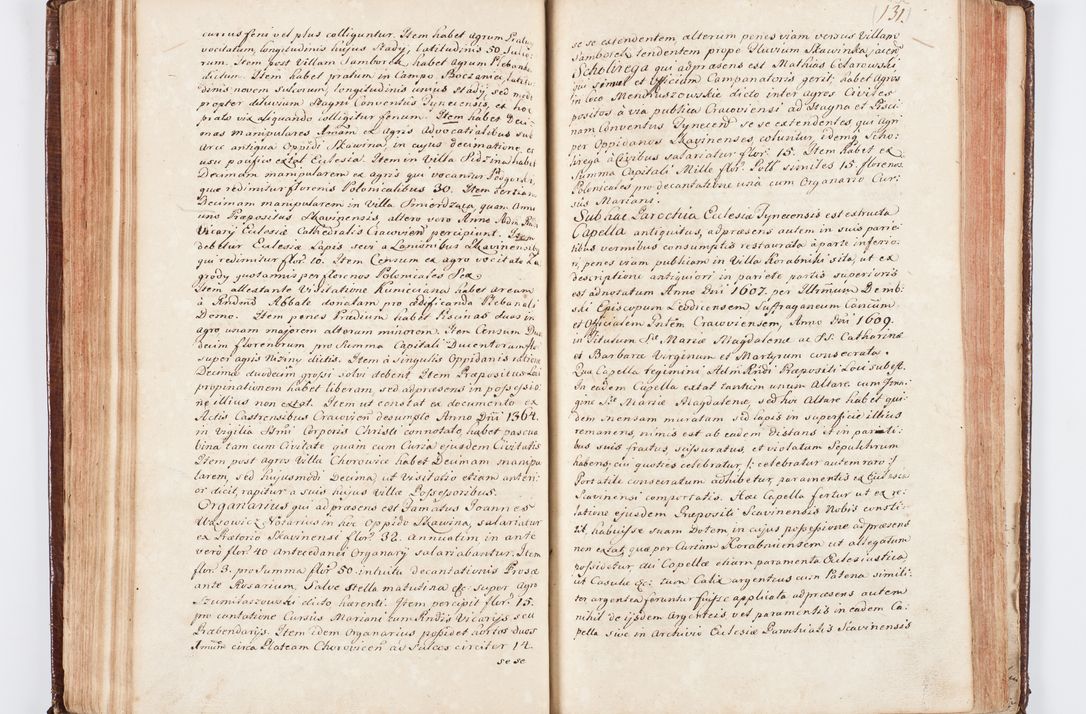 currus feni vel plus colliguntur. Item habet agrum
vocitatum, longitudinis hujus stadij, latitudinis 50. Sulco-
rum. Item post Villam Samborek habet agrum Plebanka
dictum. Item habet pratum in Campo, Boczanica, latitu-
dinis novem sulcorum, longitudinis unius stadij, sed modo
propter diluvium Stagni Conventus Tynecensis, ex hoc
prato vix aliquando colligitur fenum. Item habet Deci-
mas manipulares Annuam ex agris advocatialibus sub
Arce antiqua Oppidi Skawina, in cujus decimatione, et
usu pacifico extat Ecclesia. Item in Villa Sidzina habet
Decimam manipularem ex agris qui vocantur
quæ redimitur florenis Polonicalibus 30. Item tertiam
Decimam manipularem in Villa Smierdzaca, quam Anno
uno Præpositus Skavinensis, altero vero Anno Adm. Rndi
Vicarij Ecclesiæ Cathedralis Cracovien percipiunt. Item
debetur Ecclesiæ Lapis sevi a Lanionibus Skavinensibus
qui redimitur flor. 10. Item Censum ex agro vocitato Za
grody quotannis per florenos Polonicales Sex.
Item attestante Visitatione Kuniciana habet aream
à Rndmo Abbate donatam pro ædificanda Plebanali
Domo. Item penes Prædium habet Piscinas duas in
agro unam majorem alteram minorem. Item Censum Duo
decim florenorum pro Summa Capitali Ducentorum flor.
super agris Niziny dictis. Item à singulis Oppidanis ratione
Decimæ duodecim grossi solvi debent. Item Præpositus Loci
propinationem habet liberam, sed ad præsens in possessio-
ne illius non extat. Item ut constat ex documento ex
Actis Castrensibus Cracovien desumpto Anno Dni 1364.
in Vigilia Ssmi Corporis Christi connotato, habet pascua
bina tam cum Civitate quam cum Curia ejusdem Civitatis
Item post agros Villæ Chorowice habet Decimam manipu
larem, sed hujusmodi Decima, ut Visitatio etiam anteri-
or dicit, rapitur a suis hujus Villæ Possessoribus.
Organarius qui ad præsens est Famatus Joannes
Wąsowicz Notarius in hoc Oppido Skawina, salariatur
ex Prætorio Skavinensi flor. 32. Annuatim in ante
verò flor. 40 Antecedanei Organarij salariabantur. Item
flor. 3. pro Summa flor. 50 intuitu decantationis Prosæ
ante Rosarium, Salve stella matutina &c. super Agro
Szumilaszowski dicto, hærenti. Item percipit flor. 15.
pro cantatione Cursus Mariani cum Rndis Vicarijs seu
Præbendarijs. Item idem Organarius possidet hortos duos
Annum circa Plateam Chorovicen ad Sulcos circiter 14.
se se
(131.)
se se extendentem alterum penes viam versus Villam
Samborek tendentem prope fluvium Skawinka, jacen
Scholirega qui ad præsens est Mathias Cołarowski
qui simul et officium Campanatoris gerit habet agros
in loco Mendruszowskie dicto inter agros Civiles
positos à via publica Cracoviensi ad Stagna et Pisci-
nam Conventus Tynecen se se extendentes, qui agri
per Oppidanos Skavinenses, coluntur, idemq. Scho-
lirega à Civibus salariatur flor. 15. Item habet ex
Summa Capitali Mille flor. Poll. similes 15. florenos
Polonicales pro decantatione una cum Organario Cur-
sus Mariani.
Sub hac Parochia Ecclesiæ Tynecensis est estructa
Capella antiquitus, ad præsens autem in suis parie-
tibus vermibus consumptis restaurata à parte inferio-
ri, penes viam publicam in Villa Korabniki sita, ut ex
descriptione antiquiori in pariete partis superioris
est adnotatum Anno Dni 1607. per Illmum Demb-
ski Episcopum Leddicensem Suffraganeum Canonicum
et Officialem Gnlem Cracoviensem, Anno Dni 1609.
in Titulum Stæ Mariæ Magdalenæ ac SS. Catharinæ
et Barbaræ Virginum et Martyrum consecrata.
Quæ Capella regimini Adm Rndi Præpositi Loci subest.
In eadem Capella extat tantum unum Altare cum Ima-
gine Stæ Mariæ Magdalenæ, sed hoc Altare habet qui-
dem mensam muratam sed lapis in superficie illius
remanens nimis est ab eadem distans et in parieti-
bus suis fractus, scissuratus, et violatum Sepulchrum
habens, cui quoties celebratur |: celebratur autem raro :|
Portatile consecratum adhibetur paramentis ex Ecclesia
Scavinensi comportatis. Hæc Capella fertur ut ex re-
latione ejusdem Præpositi Scavinensis Nobis consti-
tit, habuisse suam Dotem in cujus possessione ad præsens
non extat, quæ per Curiam Korabnicensem ut allegatum
possidetur, cui Capellæ etiam paramenta Ecclesiastica
ut Casulæ &c. tum Calix argenteus cum Patena simili-
ter argentea feruntur fuisse applicata ad præsens autem
nihil de ijsdem Argenteis vel paramentis in eadem Ca-
pella sive in Archivo Ecclesiæ Parochialis Scavinensis